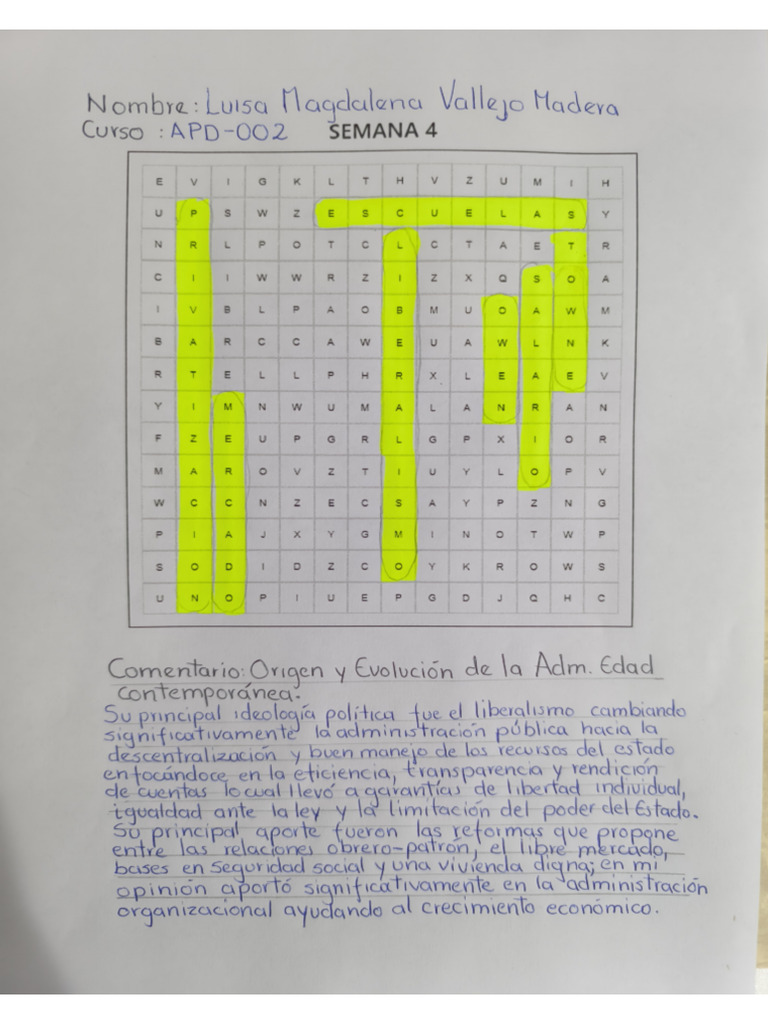 Nombre: Luisa Magdalena Vallejo Madera
Curso : APD-002 SEMANA 4
E V I G K L T H V Z U M I H
U P S W Z E S C U E L A S Y
N R L P O T C L C T A E T R
C I I W W R Z I Z X Q S O A
I V B L P A O B M U O A W M
B A R C C A W E U A W L N K
R T E L L P H R X L E A E V
Y I M N W U M A L A N R A N
F Z E U P G R L G P X I O R
M A R O V Z T I U Y L O P V
W C C N Z E C S A Y P Z N G
P I A J X Y G M I N O T W P
S O D I D Z C O Y K R O W S
U N O P I U E P G D J Q H C
Comentario: Origen y Evolución de la Adm. Edad
contemporánea.
Su principal ideología política fue el liberalismo cambiando
significativamente la administración pública hacia la
descentralización y buen manejo de los recursos del estado
enfocándoce en la eficiencia, transparencia y rendición
de cuentas lo cual llevó a garantías de libertad individual,
igualdad ante la ley y la limitación del poder del Estado.
Su principal aporte fueron las reformas que propone
entre las relaciones obrero-patrón, el libre mercado,
bases en Seguridad social y una vivienda digna; en mi
opinión aportó significativamente en la administración
organizacional ayudando al crecimiento económico.